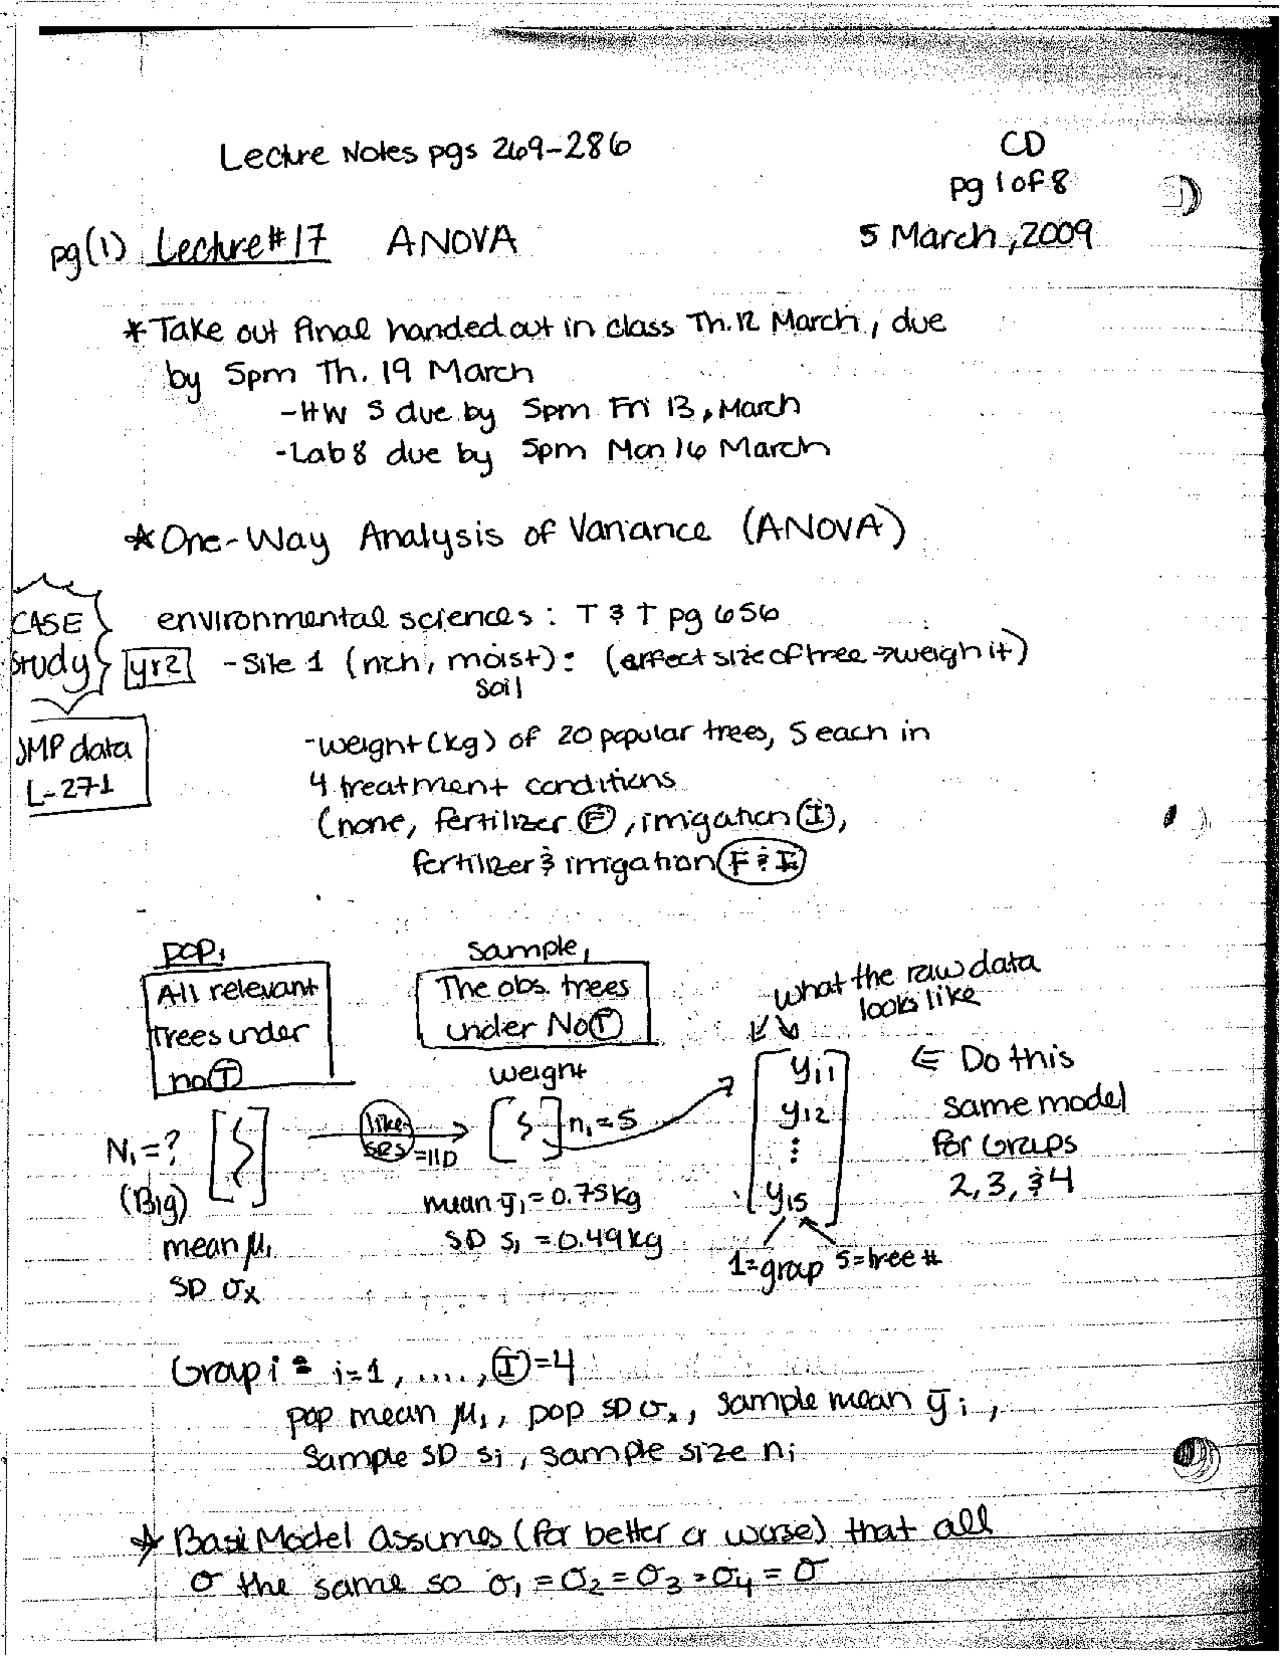 Lecture Notes pgs 269-286
CD
pg 1 of 8
5 March, 2009
pg(1) Lecture #17 ANOVA
*Take out final handed out in class Th. 12 March, due
by 5pm Th. 19 March
-HW 5 due by 5pm Fri 13, March
-Lab 8 due by 5pm Mon 16 March
*One-Way Analysis of Variance (ANOVA)
CASE
Study
environmental sciences: T & T pg 656
yr2 -Site 1 (rich, moist): (affect size of tree → weigh it)
soil
JMP data
L-271
-weight (kg) of 20 popular trees, 5 each in
4 treatment conditions
(none, fertilizer Ⓕ, irrigation Ⓘ,
fertilizer & irrigation F & I)
pop1
All relevant
Trees under
no Ⓣ
sample1
The obs. trees
under No Ⓣ
what the raw data
looks like
weight
N1=?
(Big)
mean μ1
SD σx
like
SRS = IID
n1=5
mean ȳ1=0.75kg
SD s1 =0.49kg
y11
y12
⋮
y15
1=group 5=tree #
⇐ Do this
same model
for Groups
2, 3, & 4
Group i = i=1, ...., Ⓘ=4
pop mean μ1, pop SD σx, sample mean ȳi,
Sample SD si, sample size ni
* Basic Model assumes (for better or worse) that all
σ the same so σ1 = σ2 = σ3 = σ4 = σ